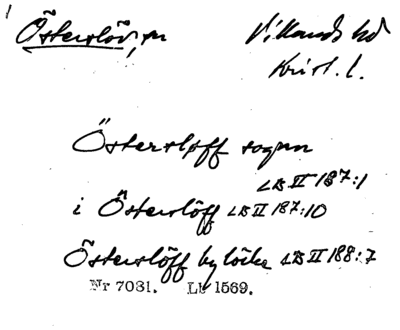 Österslöv, sn Villands hd
Krist. l.
Östersløff sogen
LB II 187:1
i Österslöff LB II 187:10
Österslöff by löcke LB II 188:7
Nr 7031. Lb 1569.